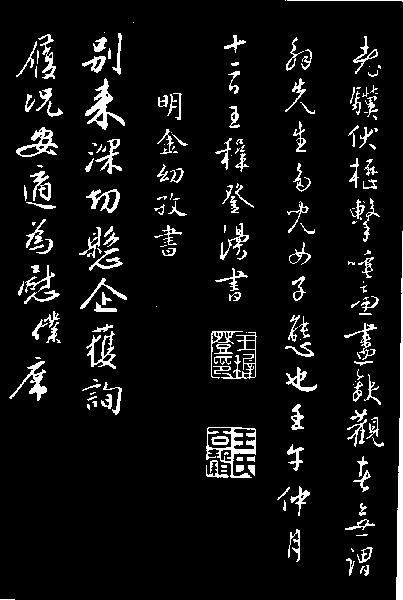 老驥伏櫪擊唾壺盡缺觀者無謂
先生多兒女子態也壬午仲月
十二日王穉登漫書
王穉登印
王氏百穀
明金幼孜書
别来深切懸企獲詢
履况安適為慰僕席